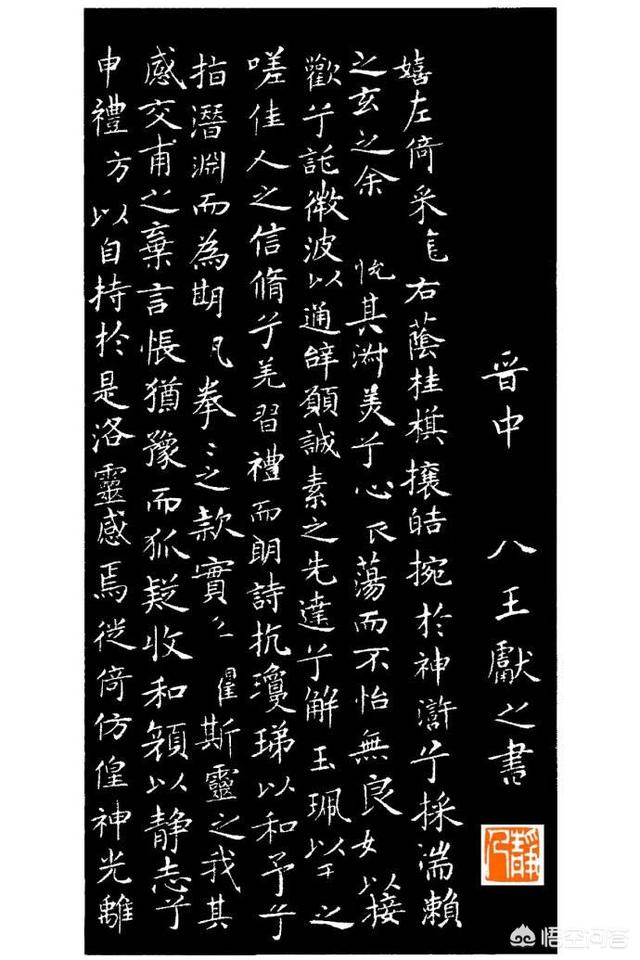 晋中 八王獻之書
嬉左倚采右蔭桂棋攘皓捥於神滸兮採湍瀨
之玄之余 其淑美兮心蕩而不怡無良女以接
歡兮託微波以通辭願誠素之先達兮解玉珮以之
嗟佳人之信脩兮羌習禮而明詩抗瓊珶以和予兮
指潛淵而為期拳〻之款實斯靈之我其
感交甫之棄言悵猶豫而狐疑收和顏以静志兮
申禮方以自持於是洛靈感焉徙倚仿偟神光離
悟空问答